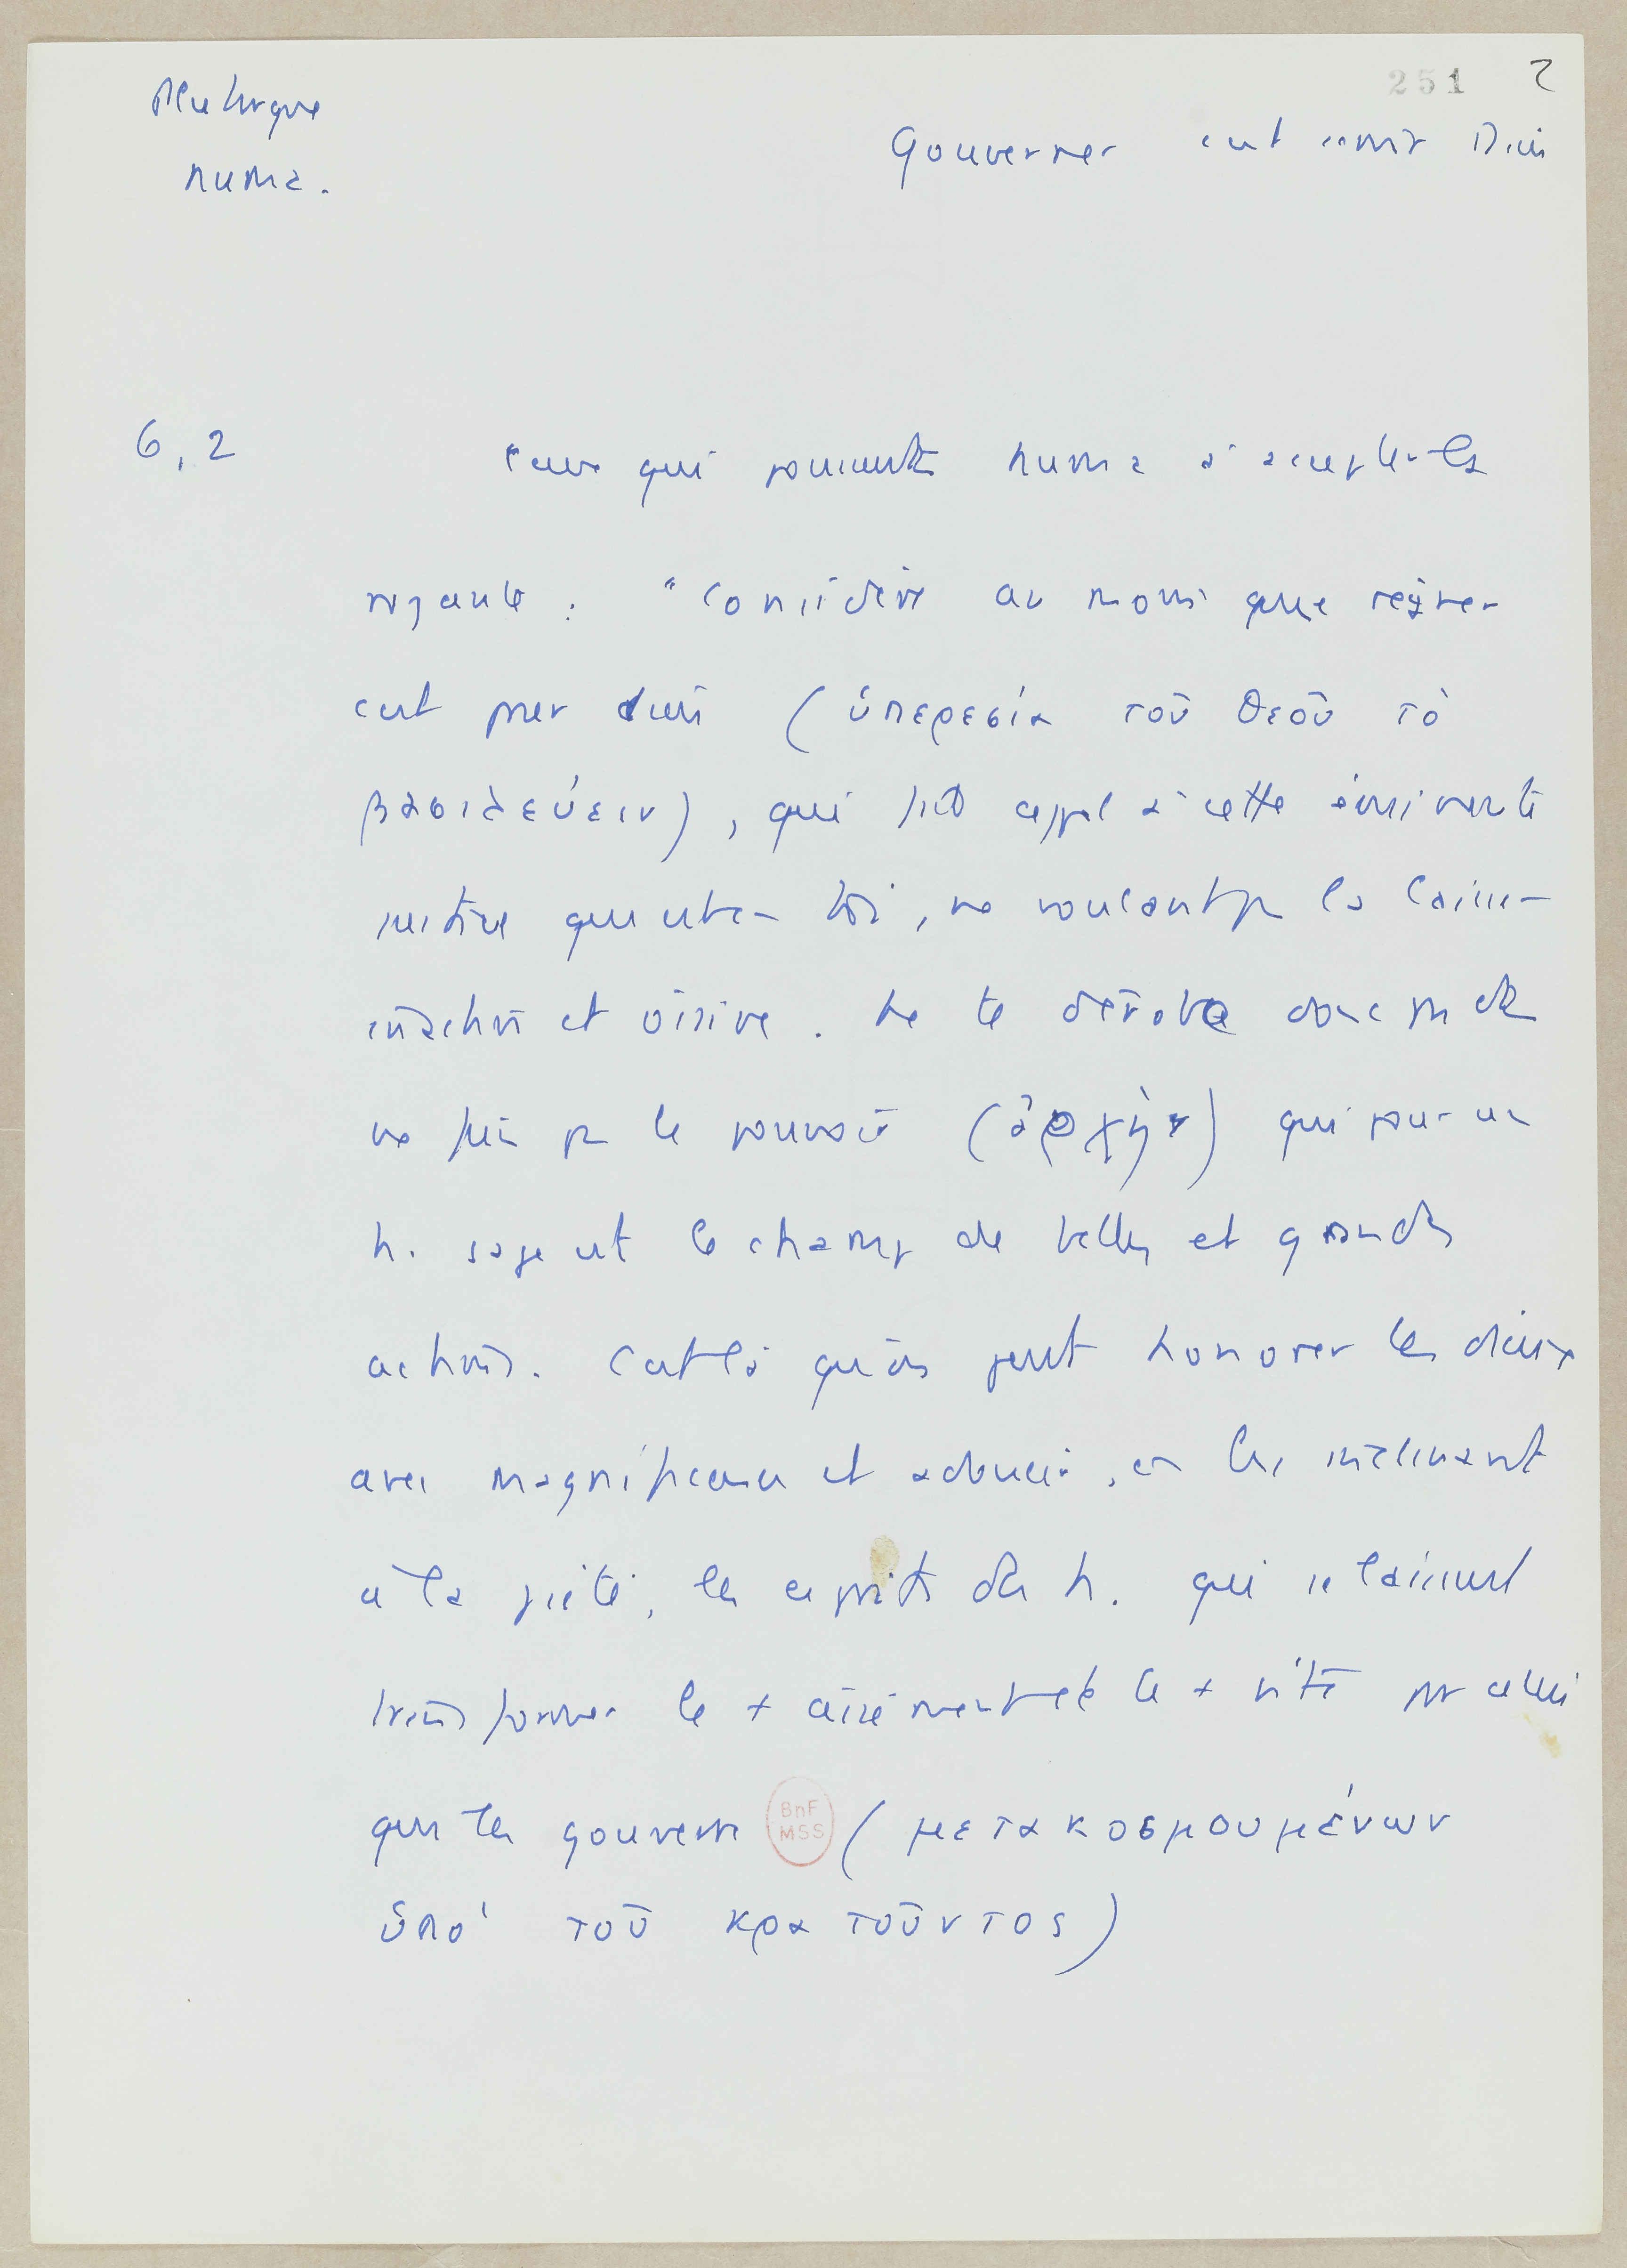 251 2
Plutarque
Numa.
Gouverner c'est servir Dieu
6,2 Ceux qui poussent Numa à accepter la
royauté : "Considère au moins que régner
c'est servir Dieu (ὑπερεσία τοῦ θεοῦ τὸ
βασιλεύειν), qui fait appel à cette éminente
justice qui est en toi, ne voulant pas la laisser
inactive et oisive. Ne te dérobe donc pas et
ne fuis pas le pouvoir (ἀρχὴν) qui pour un
h. sage est le champ de belles et grandes
actions. C'est là qu'on peut honorer les dieux
avec magnificence et adoucir, en les inclinant
à la piété, les esprits des h. qui se laissent
transformer le + aisément et le + vite par celui
qui les gouverne (μετακοσμουμένων
BnF
MSS
ὑπὸ τοῦ κρατοῦντος)